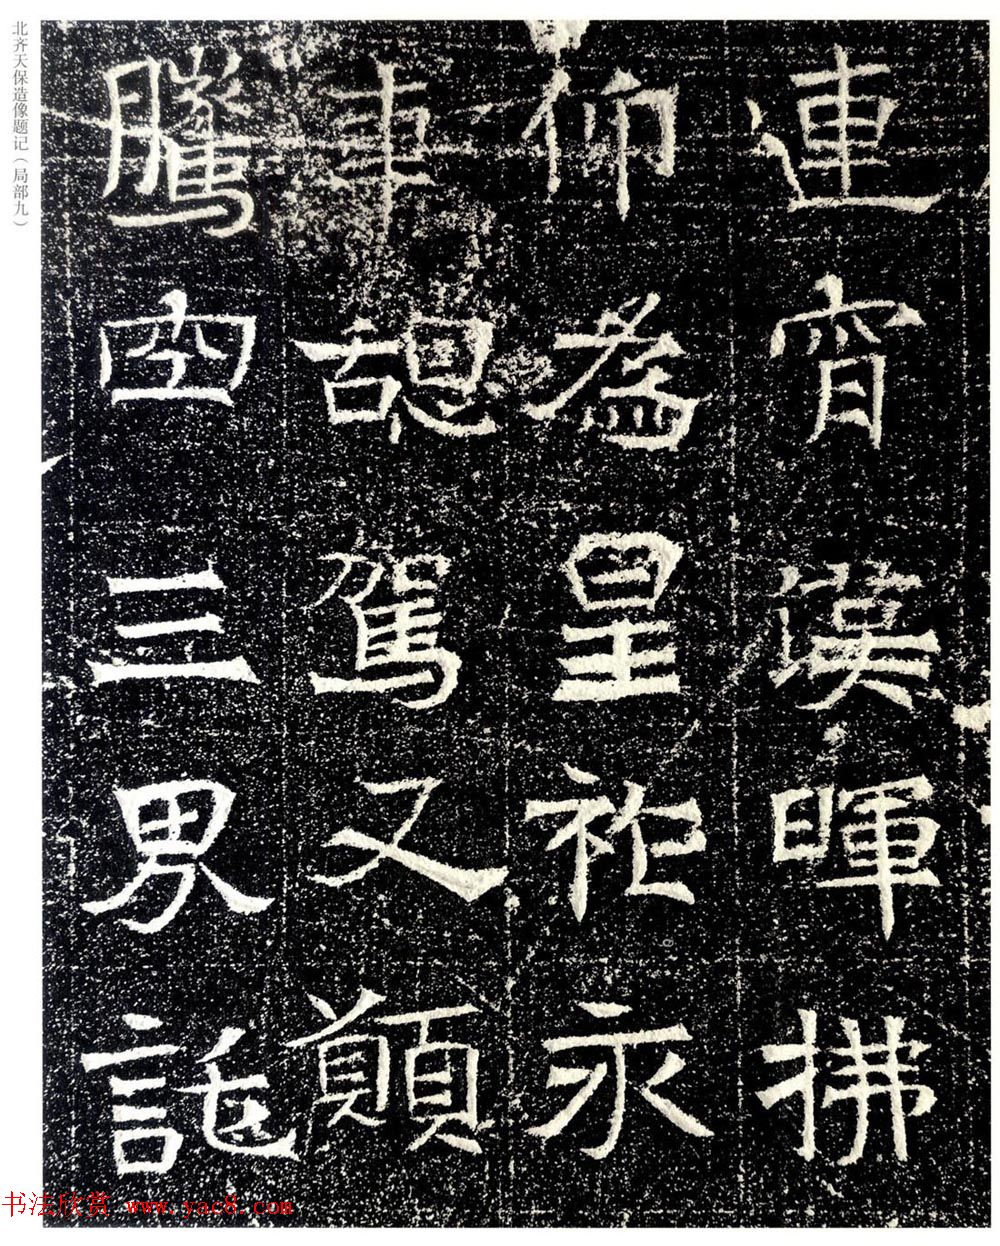 北齐天保造像题记（局部九）
連宵漢暉拂
仰爲皇祚永
車憩駕又願
騰空三男託
书法欣赏 www.yac8.com